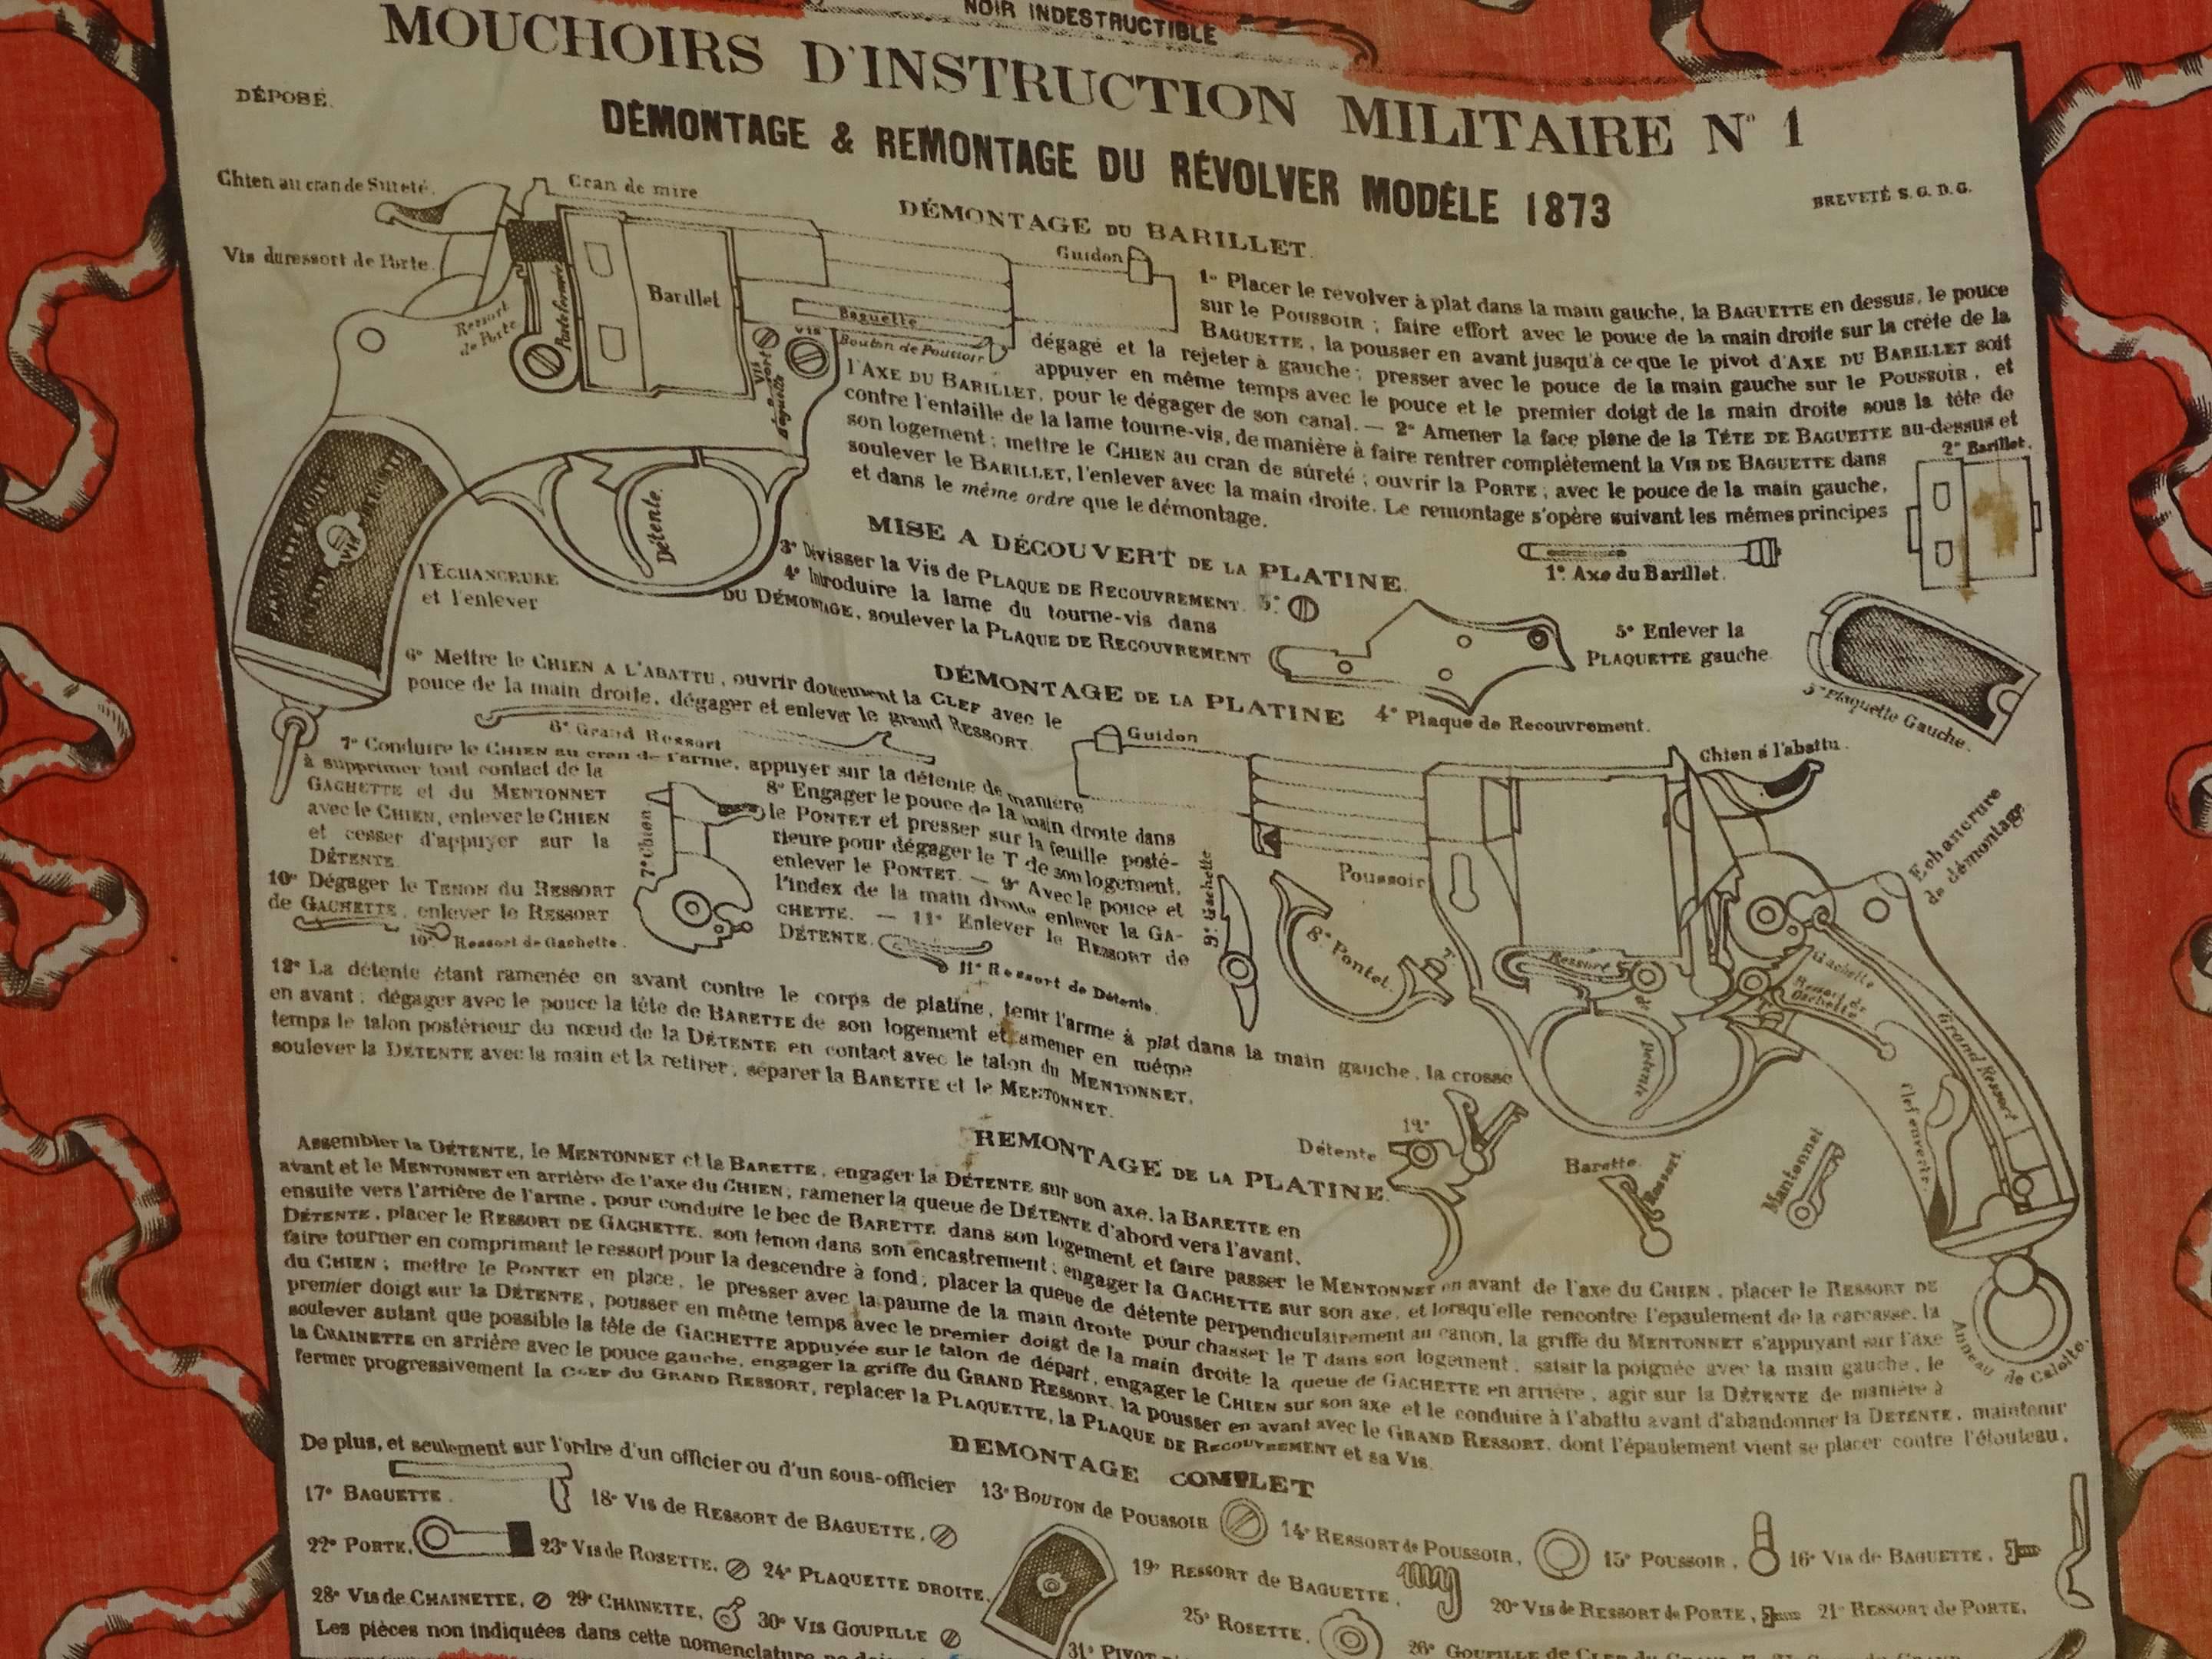 NOIR INDESTRUCTIBLE
MOUCHOIRS D'INSTRUCTION MILITAIRE N° 1
DÉPOSÉ.
DÉMONTAGE & REMONTAGE DU RÉVOLVER MODÈLE 1873
BREVETÉ S. G. D. G.
Chien au cran de Sureté.
Cran de mire
Vis du ressort de Porte.
Ressort de Porte
Porte fermée
Barillet
Baguette
Vis
Bouton de Poussoir
Guidon
Détente.
DÉMONTAGE DU BARILLET.
1° Placer le révolver à plat dans la main gauche, la BAGUETTE en dessus, le pouce
sur le POUSSOIR ; faire effort avec le pouce de la main droite sur la crête de la
BAGUETTE, la pousser en avant jusqu'à ce que le pivot d'AXE DU BARILLET soit
dégagé et la rejeter à gauche ; presser avec le pouce de la main gauche sur le POUSSOIR, et
appuyer en même temps avec le pouce et le premier doigt de la main droite sous la tête de
l'AXE DU BARILLET, pour le dégager de son canal. — 2° Amener la face plane de la TÊTE DE BAGUETTE au-dessus et
contre l'entaille de la lame tourne-vis, de manière à faire rentrer complètement la VIS DE BAGUETTE dans
son logement ; mettre le CHIEN au cran de sûreté ; ouvrir la PORTE ; avec le pouce de la main gauche,
soulever le BARILLET, l'enlever avec la main droite. Le remontage s'opère suivant les mêmes principes
et dans le même ordre que le démontage.
2° Barillet.
1° Axe du Barillet.
MISE A DÉCOUVERT DE LA PLATINE.
3° Dévisser la VIS de PLAQUE DE RECOUVREMENT. 3°
4° Introduire la lame du tourne-vis dans
l'ECHANCRURE DU DÉMONTAGE, soulever la PLAQUE DE RECOUVREMENT
et l'enlever
5° Enlever la
PLAQUETTE gauche
4° Plaque de Recouvrement.
5° Plaquette Gauche.
DÉMONTAGE DE LA PLATINE
6° Mettre le CHIEN A L'ABATTU, ouvrir doucement la CLEF avec le
pouce de la main droite, dégager et enlever le grand RESSORT.
6° Grand Ressort
7° Conduire le CHIEN au cran de l'arme, appuyer sur la détente de manière
à supprimer tout contact de la
GACHETTE et du MENTONNET
avec le CHIEN, enlever le CHIEN
et cesser d'appuyer sur la
DÉTENTE.
7° Chien
8° Engager le pouce de la main droite dans
le PONTET et presser sur la feuille posté-
rieure pour dégager le T de son logement,
enlever le PONTET. — 9° Avec le pouce et
l'index de la main droite enlever la GA-
CHETTE. — 11° Enlever le RESSORT de
DÉTENTE.
10° Dégager le TENON du RESSORT
de GACHETTE, enlever le RESSORT
10° Ressort de Gachette.
11° Ressort de Détente.
9° Gachette
8° Pontet.
12° La détente étant ramenée en avant contre le corps de platine, tenir l'arme à plat dans la main gauche, la crosse
en avant ; dégager avec le pouce la tête de BARETTE de son logement et amener en même
temps le talon postérieur du nœud de la DÉTENTE en contact avec le talon du MENTONNET,
soulever la DÉTENTE avec la main et la retirer ; séparer la BARETTE et le MENTONNET.
Guidon
Chien à l'abattu.
Poussoir
Echancrure de démontage
Ressort
Gachette
Ressort de Gachette
Grand Ressort
Détente
Clef ouverte.
Anneau de Calotte.
Détente
12°
Barette.
Ressort.
Mentonnet
REMONTAGE DE LA PLATINE.
Assembler la DÉTENTE, le MENTONNET et la BARETTE, engager la DÉTENTE sur son axe, la BARETTE en
avant et le MENTONNET en arrière de l'axe du CHIEN, ramener la queue de DÉTENTE d'abord vers l'avant,
ensuite vers l'arrière de l'arme, pour conduire le bec de BARETTE dans son logement et faire passer le MENTONNET en avant de l'axe du CHIEN, placer le RESSORT DE
DÉTENTE, placer le RESSORT DE GACHETTE, son tenon dans son encastrement ; engager la GACHETTE sur son axe, et lorsqu'elle rencontre l'épaulement de la carcasse, la
faire tourner en comprimant le ressort pour la descendre à fond ; placer la queue de détente perpendiculairement au canon, la griffe du MENTONNET s'appuyant sur l'axe
du CHIEN ; mettre le PONTET en place, le presser avec la paume de la main droite pour chasser le T dans son logement, saisir la poignée avec la main gauche, le
premier doigt sur la DÉTENTE, pousser en même temps avec le premier doigt de la main droite la queue de GACHETTE en arrière, agir sur la DÉTENTE de manière à
soulever autant que possible la tête de GACHETTE appuyée sur le talon de départ, engager le CHIEN sur son axe et le conduire à l'abattu avant d'abandonner la DÉTENTE, maintenir
la CHAINETTE en arrière avec le pouce gauche, engager la griffe du GRAND RESSORT, la pousser en avant avec le GRAND RESSORT, dont l'épaulement vient se placer contre l'étouteau,
fermer progressivement la CLEF DU GRAND RESSORT, replacer la PLAQUETTE, la PLAQUE DE RECOUVREMENT et sa VIS.
DEMONTAGE COMPLET
De plus, et seulement sur l'ordre d'un officier ou d'un sous-officier
13° BOUTON de POUSSOIR
14° RESSORT de POUSSOIR,
15° POUSSOIR,
16° VIS de BAGUETTE,
17° BAGUETTE.
18° VIS de RESSORT de BAGUETTE,
19° RESSORT de BAGUETTE,
20° VIS de RESSORT de PORTE,
21° RESSORT de PORTE,
22° PORTE,
23° VIS de ROSETTE,
24° PLAQUETTE DROITE,
25° ROSETTE,
28° VIS de CHAINETTE,
29° CHAINETTE,
30° VIS GOUPILLE
31° PIVOT
Les pièces non indiquées dans cette nomenclature